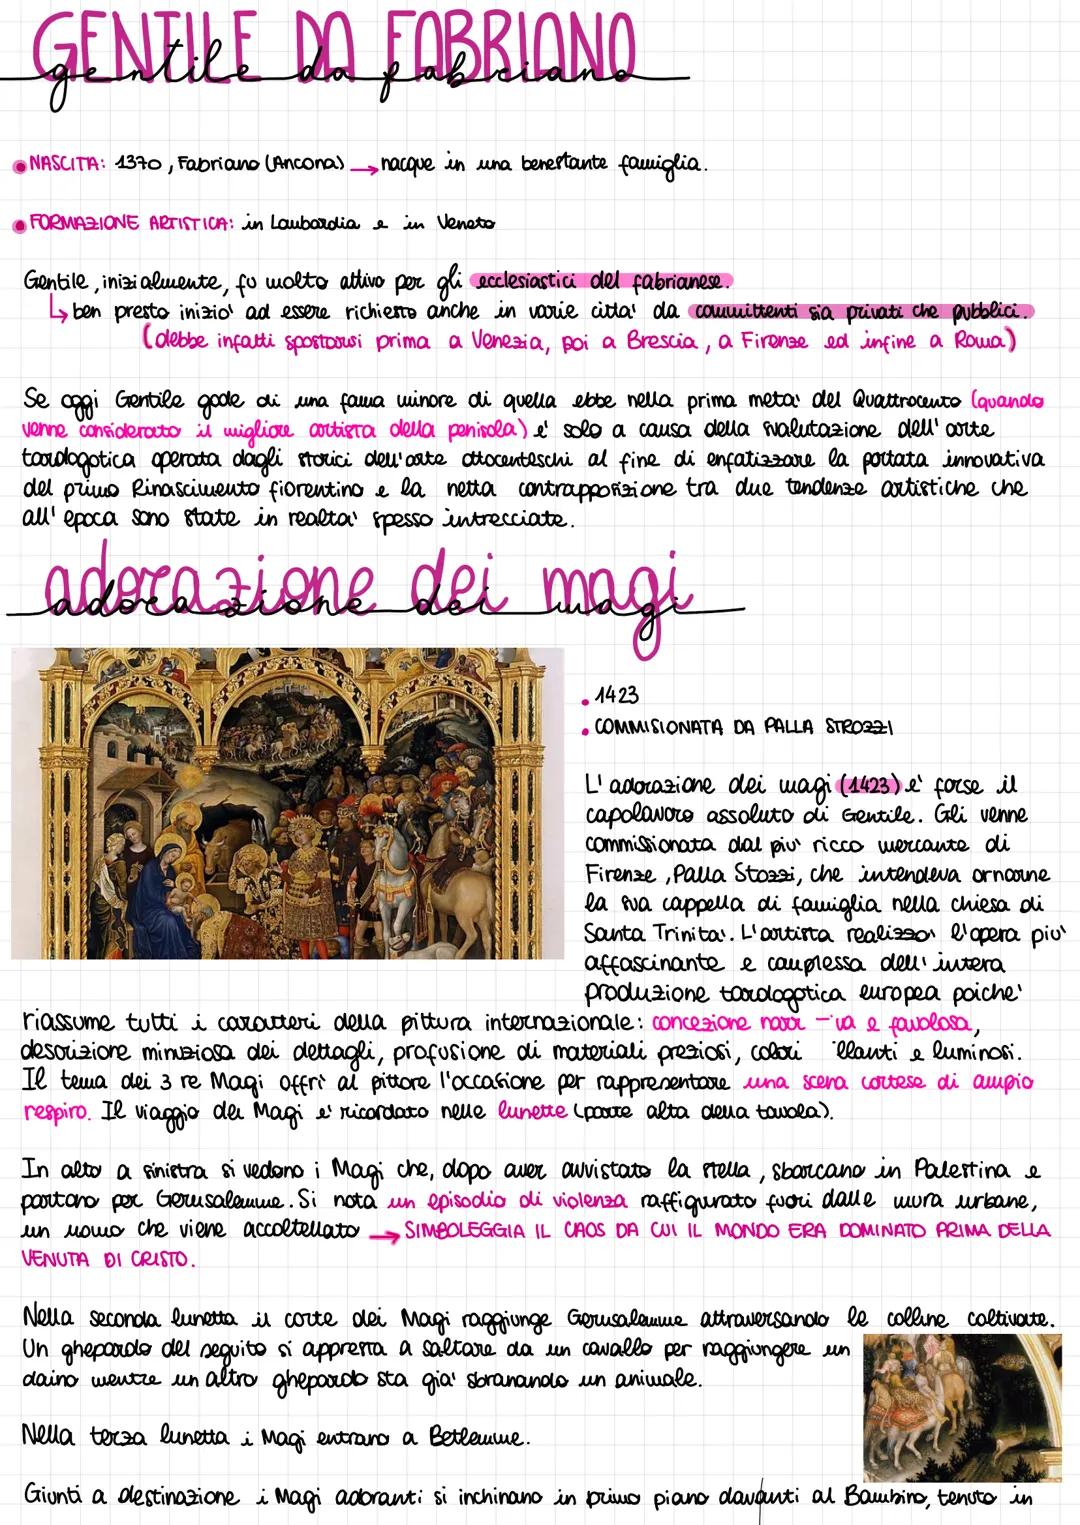 GENTILE DA FABRIANO
gentile da fabriano
NASCITA: 1370, Fabriano (Ancona) → nacque in una benestante famiglia.
FORMAZIONE ARTISTICA: in Lombardia e in Veneto
Gentile, inizialmente, fu molto attivo per gli ecclesiastici del fabrianese.
↳ ben presto inizio' ad essere richiesto anche in varie citta' da committenti sia privati che pubblici.
(debbe infatti spostarsi prima a Venezia, poi a Brescia, a Firenze ed infine a Roma)
Se oggi Gentile gode di una fama minore di quella ebbe nella prima meta' del Quattrocento (quando
venne considerato il migliore artista della penisola) e' solo a causa della svalutazione dell'arte
tardogotica operata dagli storici dell'arte ottocenteschi al fine di enfatizzare la portata innovativa
del primo Rinascimento fiorentino e la netta contrapposizione tra due tendenze artistiche che
all'epoca sono state in realta' spesso intrecciate.
adorazione dei magi
adorazione dei magi
• 1423
• COMMISIONATA DA PALLA STROZZI
L'adorazione dei magi (1423) e' forse il
capolavoro assoluto di Gentile. Gli venne
commissionata dal piu' ricco mercante di
Firenze, Palla Stozzi, che intendeva ornarne
la sua cappella di famiglia nella chiesa di
Santa Trinita'. L'artista realizzo' l'opera piu'
affascinante e complessa dell'intera
produzione tardogotica europea poiche'
riassume tutti i caratteri della pittura internazionale: concezione narr va e favolosa,
descrizione minuziosa dei dettagli, profusione di materiali preziosi, colori llanti e luminosi.
Il tema dei 3 re Magi offri' al pittore l'occasione per rappresentare una scena cortese di ampio
respiro. Il viaggio dei Magi e' ricordato nelle lunette (parte alta della tavola).
In alto a sinistra si vedono i Magi che, dopo aver avvistato la stella, sbarcano in Palestina e
partono per Gerusalemme. Si nota un episodio di violenza raffigurato fuori dalle mura urbane,
un uomo che viene accoltellato → SIMBOLEGGIA IL CAOS DA CUI IL MONDO ERA DOMINATO PRIMA DELLA
VENUTA DI CRISTO.
Nella seconda lunetta il corte dei Magi raggiunge Gerusalemme attraversando le colline coltivate.
Un ghepardo del seguito si appresta a saltare da un cavallo per raggiungere un
daino mentre un altro ghepardo sta gia' sbranando un animale.
Nella terza lunetta i Magi entrano a Betlemme.
Giunti a destinazione i Magi adoranti si inchinano in primo piano davanti al Bambino, tenuto in